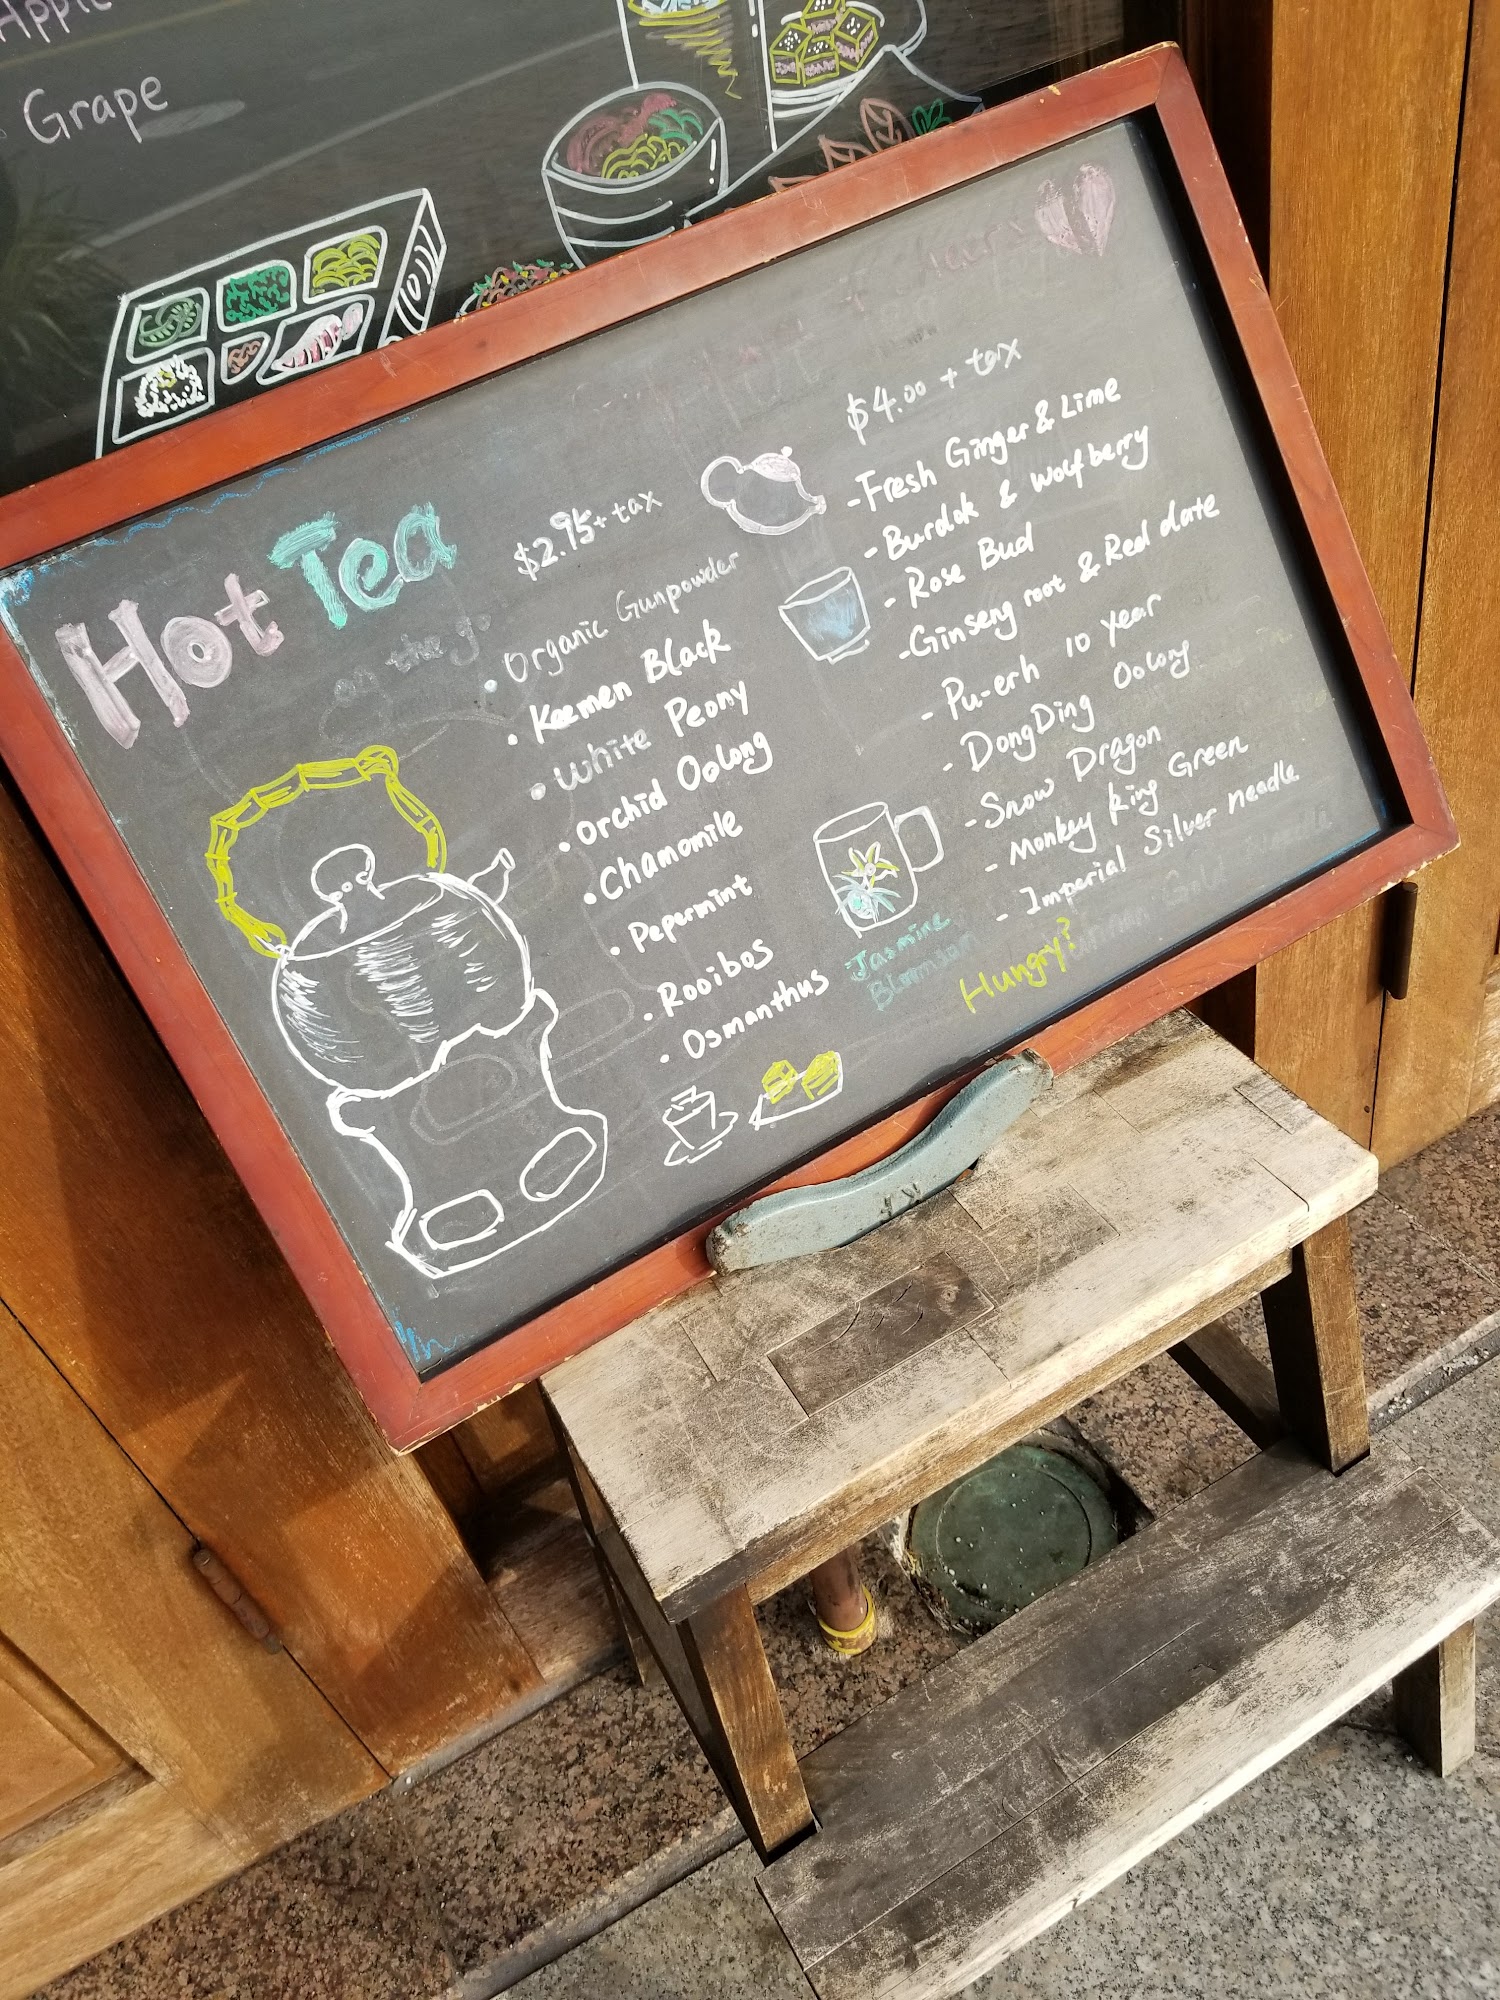 Grape
Hot Tea
$2.95 + tax
• Organic Gunpowder
• Keemen Black
• White Peony
• Orchid Oolong
• Chamomile
• Pepermint
• Rooibos
• Osmanthus
$4.00 + tax
- Fresh Ginger & Lime
- Burdok & Wolfberry
- Rose Bud
- Ginseng root & Red date
- Pu-erh 10 Year
- DongDing Oolong
- Snow Dragon
- Monkey king Green
- Imperial Silver needle
Jasmine
Hungry?